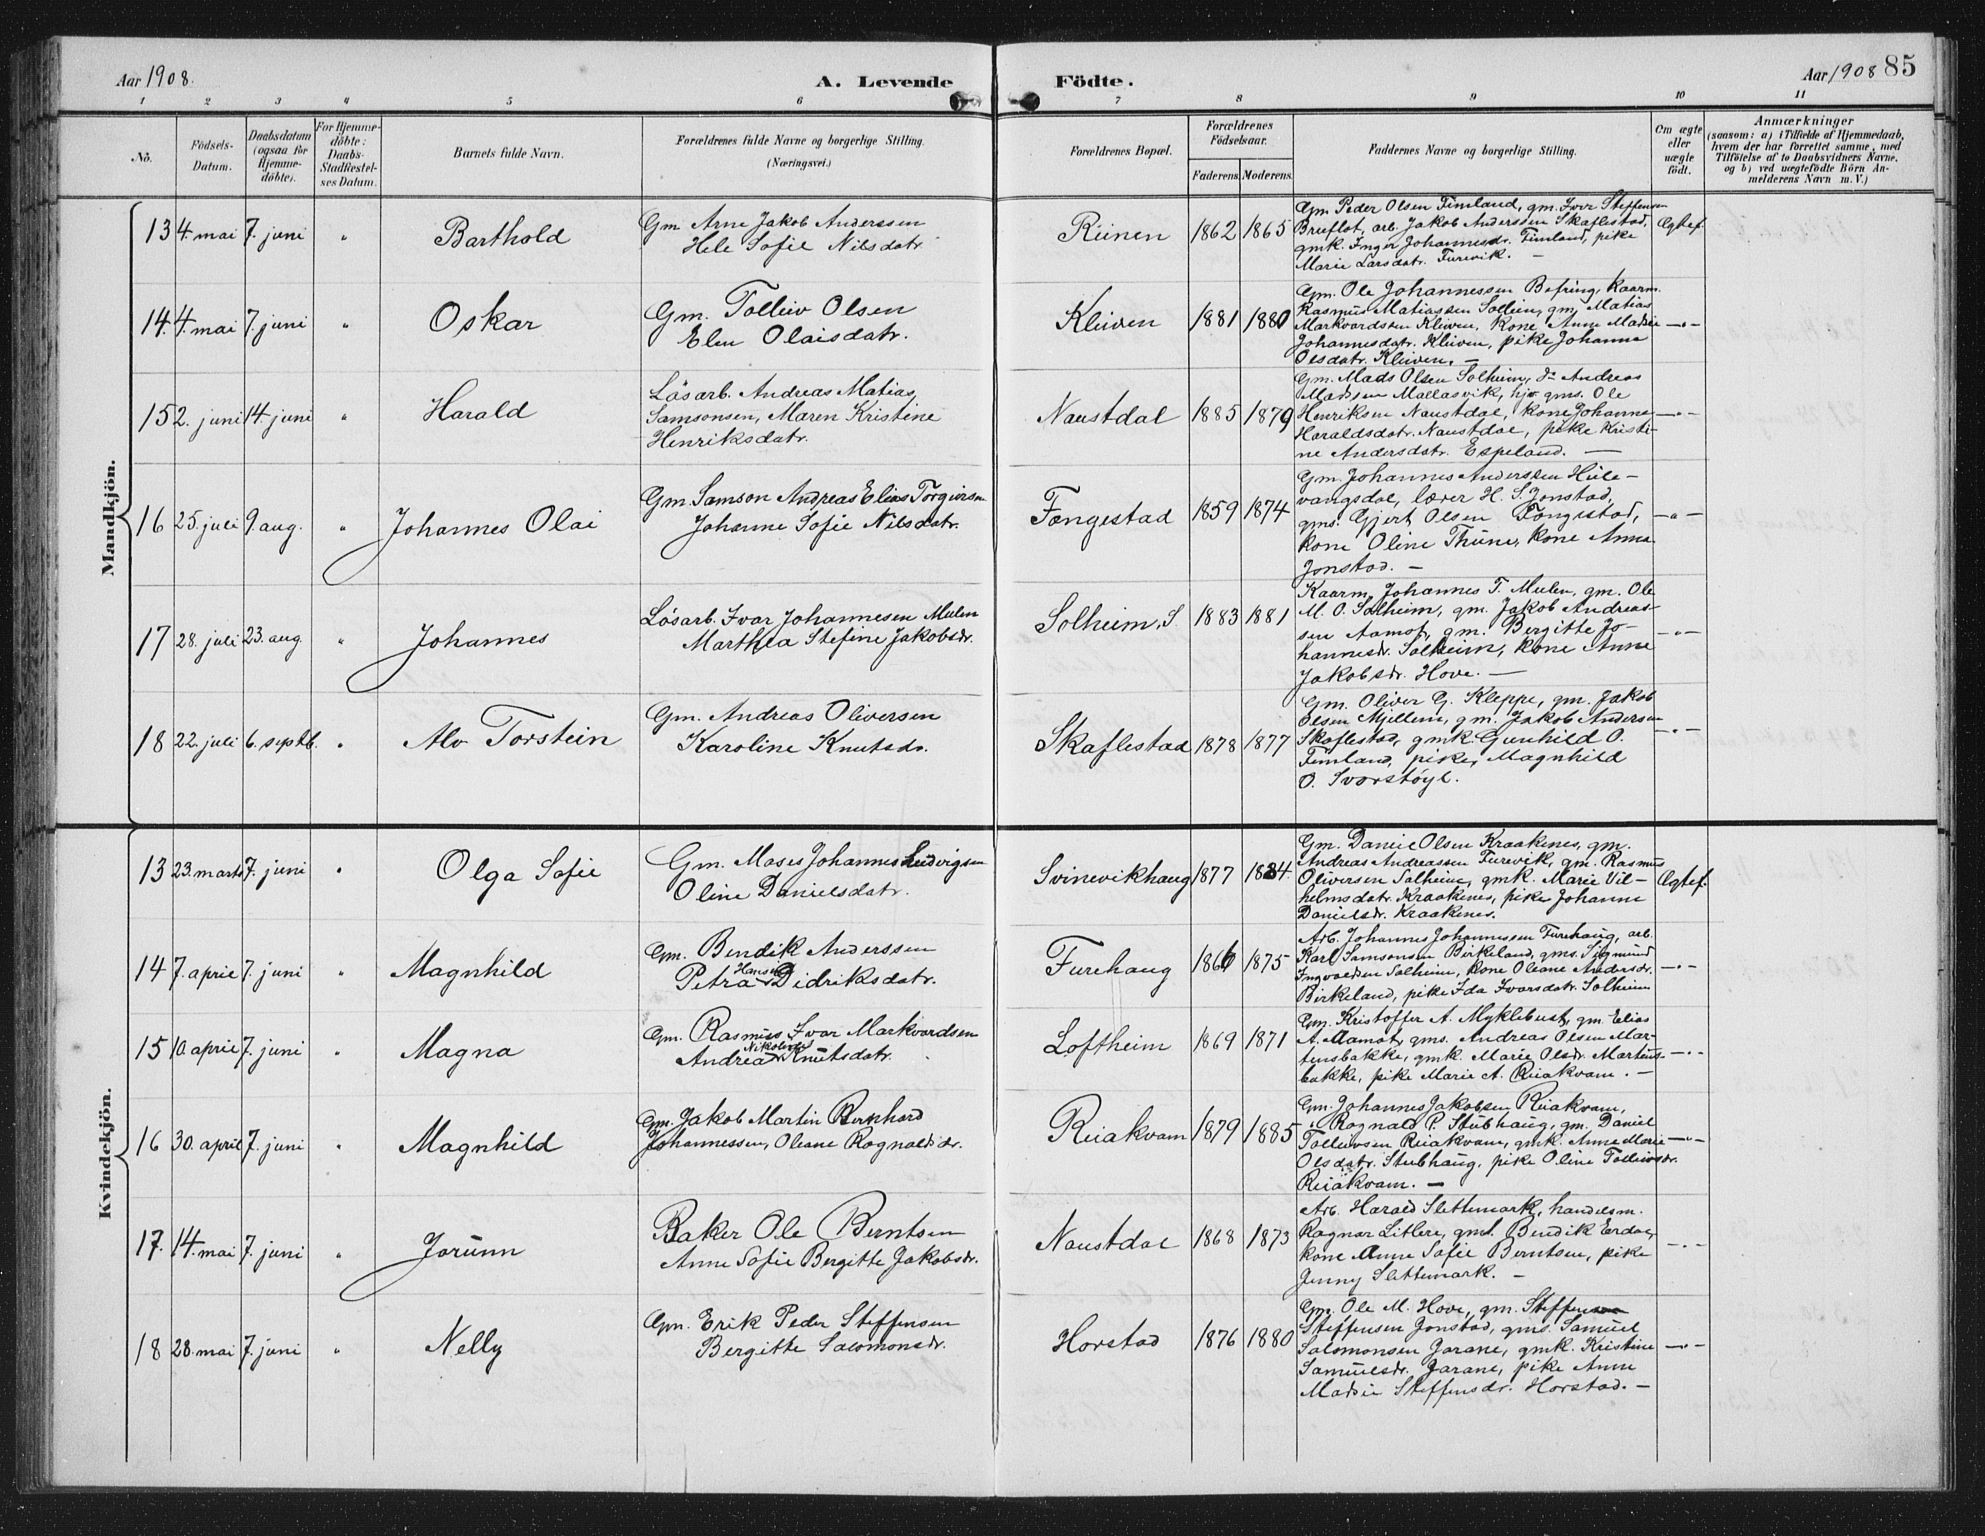 Aar 1908. A. Levende Födte. Aar 1908 85
1 2 3 4 5 6 7 8 9 10 11
No. Födsels-Datum. Daabsdatum (ogsaa for Hjemme-döbte). For Hjemme-döbte: Daabs-Stadfæstel-ses Datum. Barnets fulde Navn. Forældrenes fulde Navne og borgerlige Stilling. (Næringsvei.) Forældrenes Bopæl. Forældrenes Födselsaar. Faderens. Moderens. Faddernes Navne og borgerlige Stilling. Om ægte eller uægte födt. Anmærkninger (saasom: a) i Tilfælde af Hjemmedaab, hvem der har forrettet samme, med Tilföielse af to Daabsvidners Navne, og b) ved uægtefödte Börn An-melderens Navn m. V.)
Mandkjön.
13 4 mai 7. juni " Barthold
Gm. Arne Jakob Anderssen
Hele Sofie Nilsdatr.
Reinen 1862 1865
Gm. Peder Olsen Fimland, gm. Iver Steffensen
Brueflot, arb. Jakob Anderssen Skaflestad,
gmk. Inger Johannesdr. Fimland, pike
Marie Larsdatr. Furevik. —
Ægtef.
14. 4. mai 7. juni " Oskar
Gm. Tolleiv Olsen
Elen Olaisdatr.
Kleiven 1881 1880
Gm. Ole Johannessen Befring, kaarm.
Rasmus Matiassen Solheim, gm. Matias
Markvardsen Kleiven, kone Anne Madsie
Johannesdatr. Kleiven, pike Johanna
Olsdatr. Kleiven. —
—"—
15 2. juni 14. juni " Harald
Lösarb. Andreas Matias
Samsonsen, Maren Kristine
Henriksdatr.
Naustdal 1885 1879
Gm. Mads Olsen Solheim, do Andreas
Madssen Mallasvik, gms. Ole
Henriksen Naustdal, kone Johanne
Haraldsdatr. Naustdal, pike Kristi-
ne Andersdtr. Espeland. —
—"—
16 25. juli 9. aug. " Johannes Olai
Gm. Samson Andreas Elias Torgeirsen
Johanne Sofie Nilsdatr.
Fængestad 1859 1874
Gm. Johannes Anderssen Hule-
vangsdal, lærer H. S. Jonstad,
gms. Gjert Olsen Fængestad,
kone Oline Thune, kone Anna
Jonstad. —
—"—
17 28. juli 23. aug. " Johannes
Lösarb. Ivar Johannesen Mulen
Marthea Stefine Jakobsdr.
Solheim, S. 1883 1881
Kaarm. Johannes T. Mulen, gm. Ole
M. O. Solheim, gm. Jakob Andreas-
sen Aamot, gm. Bergitte Jo-
hannesdr. Solheim, kone Anne
Jakobsdr. Hove. —
—"—
18 22. juli 6. septb. " Alv Torstein
Gm. Andreas Oliversen
Karoline Knutsdr.
Skaflestad 1878 1877
Gm. Oliver G. Kleppe, gm. Jakob
Olsen Mjellem, gm. Jakob Andersen
Skaflestad, gmk. Gunhild O.
Fimland, pike, Magnhild
O. Svorstöyl.
—"—
Kvindekjön.
13 23. marts 7. juni " Olga Sofie
Gm. Moses Johannes Ludvigsen
Oline Danielsdatr.
Svinevikhaug 1877 1884.
Gm. Daniel Olsen Kraakenes, gm.
Andreas Andreassen Furevik, gm. Rasmus
Oliversen Solheim, gmk. Marie Vil-
helmsdatr. Kraakenes, pike Johanne
Danielsdr. Kraakenes.
Ægtef.
14 7. april 7. juni " Magnhild
Gm. Bendik Anderssen
Petra Hansine Didriksdatr.
Furehaug 1866 1875
Arb. Johannes Johannessen Furehaug, arb.
Karl Samsonsen Birkeland, gms. Sigmund
Ingvaldsen Solheim, kone Oleane Andersdr.
Birkeland, pike Ida Ivarsdatr. Solheim
—"—
15 10. april 7. juni " Magna
Gm. Rasmus Ivar Markvardsen
Andrea Nikolina Knutsdatr.
Loftheim 1869 1871
Gm. Kristoffer A. Myklebust, gm. Elias
A. Aamot, gms. Andreas Olsen Mar-
tensbakke, gmk. Marie Olsdr. Martens-
bakke, pike Marie A. Reiakvam. —
—"—
16 30. april 7. juni " Magnhild
Gm. Jakob Martin Bernhard
Johannessen, Oleane Ragnaldsdr.
Reiakvam 1879 1885
Gm. Johannes Jakobsen Reiakvam,
" Ragnald P. Stubhaug, gm. Daniel
Tolleivsen Reiakvam, gmk. Anne Marie
Olsdatr. Stubhaug, pike Oline Tolleivsdr.
Reiakvam. —
—"—
17. 14. mai 7. juni " Jorunn
Baker Ole Berntsen
Anne Sofie Bergitte Jakobsdr.
Naustdal 1868 1873
Arb. Harald Slettemark, handelsm.
Ragnar Litlere, gms. Bendik Erdal,
kone Anne Sofie Berntsen, pike
Jenny Slettemark. —
—"—
18 28. mai 7. juni " Nelly
Gm. Erik Peder Steffensen
Bergitte Salomonsdr.
Horstad 1876 1880
Gm. Ole M. Hove, gm. Steffen
Steffensen Jonstad, gms. Samuel
Salomonsen Jarane, gmk. Kristine
Samuelsdr. Jarane, pike Anne
Madsie Steffensdr. Horstad. —
—"—